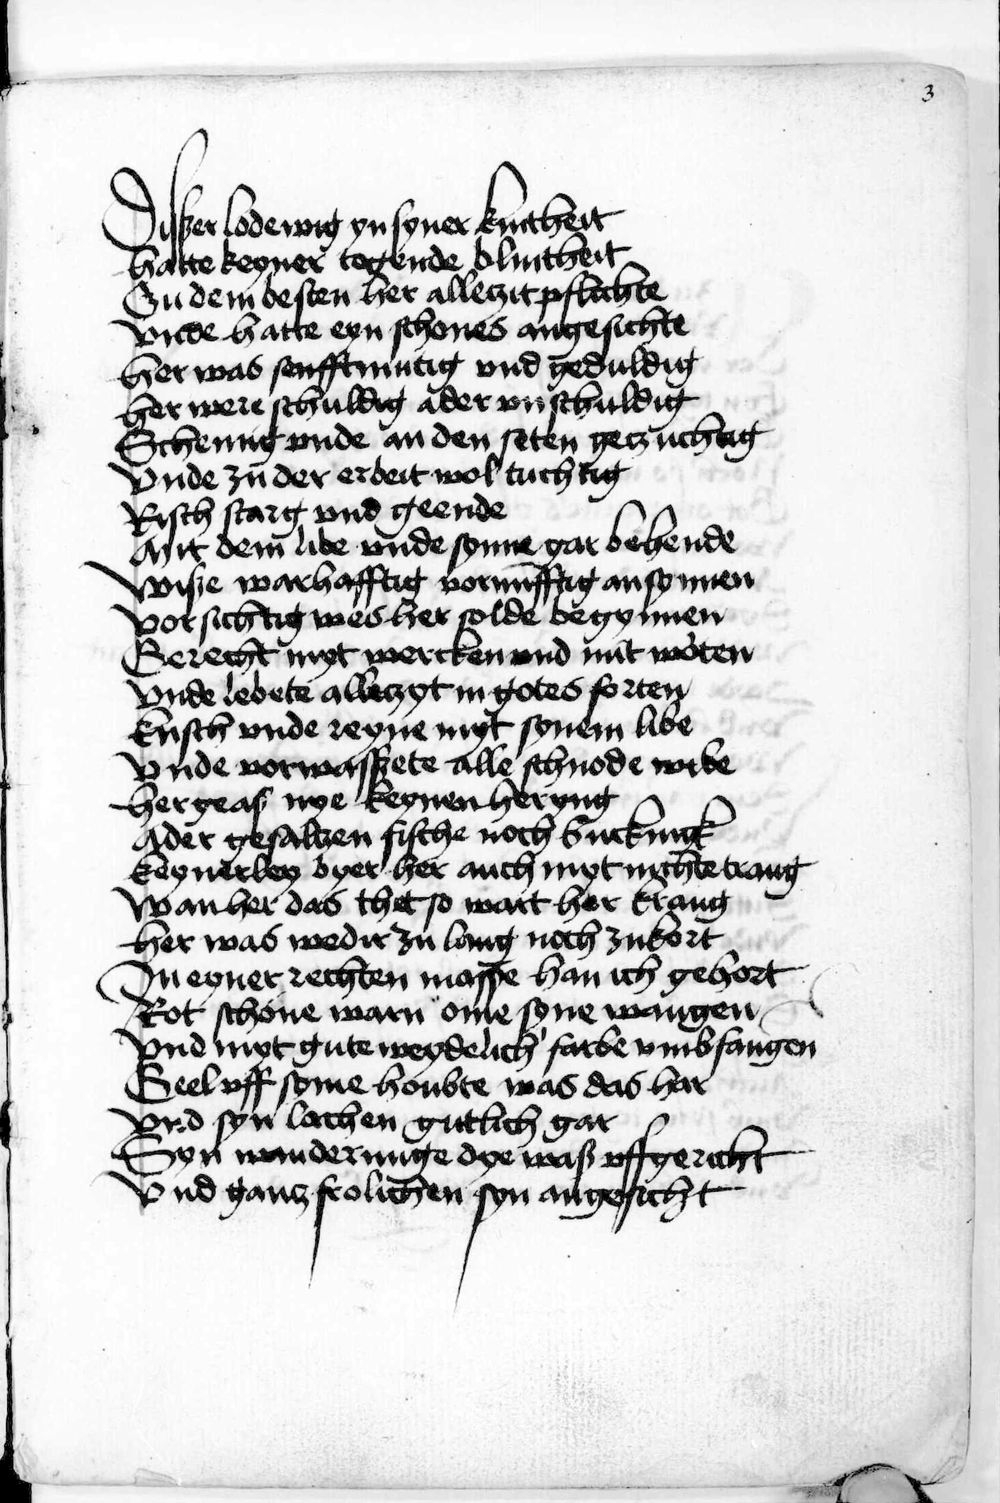 3
Disßer lodewig yn syner kintheit
hatte keyner togende blintheit
Zu dem besten her alleczit pflichte
Vnde hatte eyn schones angesichte
her was senfftmutig vnd geduldig
her were schuldig ader vnschuldig
Schemig vnde an den seten geczuchtig
Vnde zu der erbeit wol tuchtig
Risch starg vnd geende
Mit dem libe vnde synne gar behende
Wise warhafftig vornufftig an synnen
Vorsichtig wes her solde begynnen
Gerecht myt wercken vnd mit worten
Vnde lebete alleczyt in gotes forten
kusch vnde reyne myt synem libe
Vnde vorwasßete alle schnode wibe
her geaß nye keynen heryng
Ader gesaltzen fische noch buckingk
keynerley byer her auch myt nichte trang
Wan her das thet so wart her krang
her was wedir zu lang noch zu kort
In eyner rechten masße han ich gehort
Rot schone warn ome syne wangen
Vnd myt gute weydelich farbe vmbfangen
Geel vff syme houbte was das har
Vnd syn lachen gutlich gar
Syn wanderunge dye waß vffgericht
Vnd gantz frolichen syn angesicht